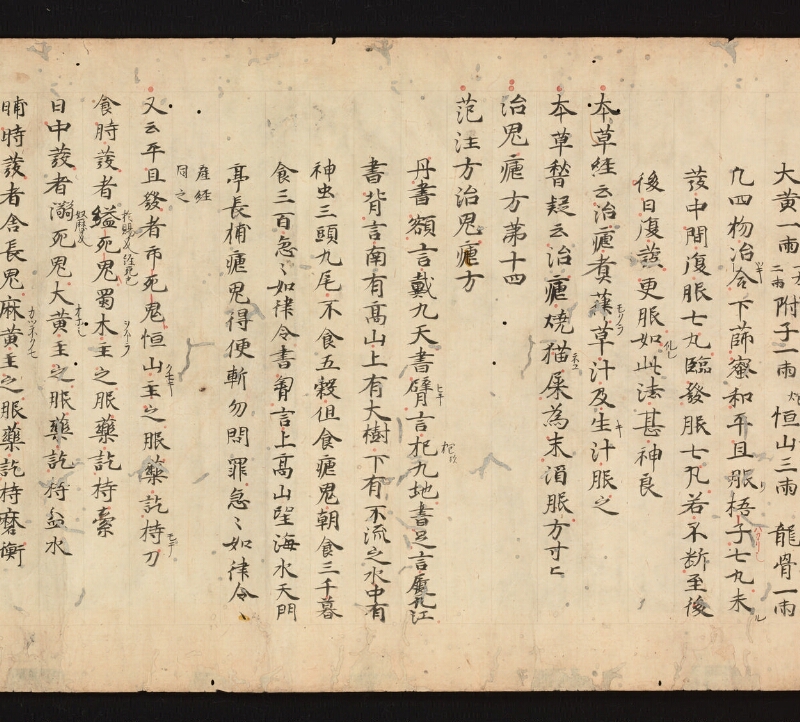 大黄一兩 附子一兩 恒山三兩 龍骨一兩
凡四物冶合下篩蜜和平旦服梧子七丸未
發中間復服七丸臨發服七丸若不断至後
後日復發更服如此法甚神良
本草経云治瘧煮葎草汁及生汁服之
本草稽疑云治瘧焼猫屎為末酒服方寸匕
治鬼瘧方苐十四
范汪方治鬼瘧方
丹書額言戴九天書臂言抱九地書足言履九江
書背言南有高山上有大樹下有不流之水中有
神虫三頭九尾不食五穀但食瘧鬼朝食三千暮
食三百急〻如律令書胷言上高山望海水天門
亭長捕瘧鬼得便斬勿問罪急〻如律令
産経
同之
又云平旦發者市死鬼恒山主之服藥訖持刀
食時發者縊死鬼蜀木主之服藥訖持索
日中發者溺死鬼大黄主之服藥訖持盆水
晡時發者舎長鬼麻黄主之服藥訖持磨衡